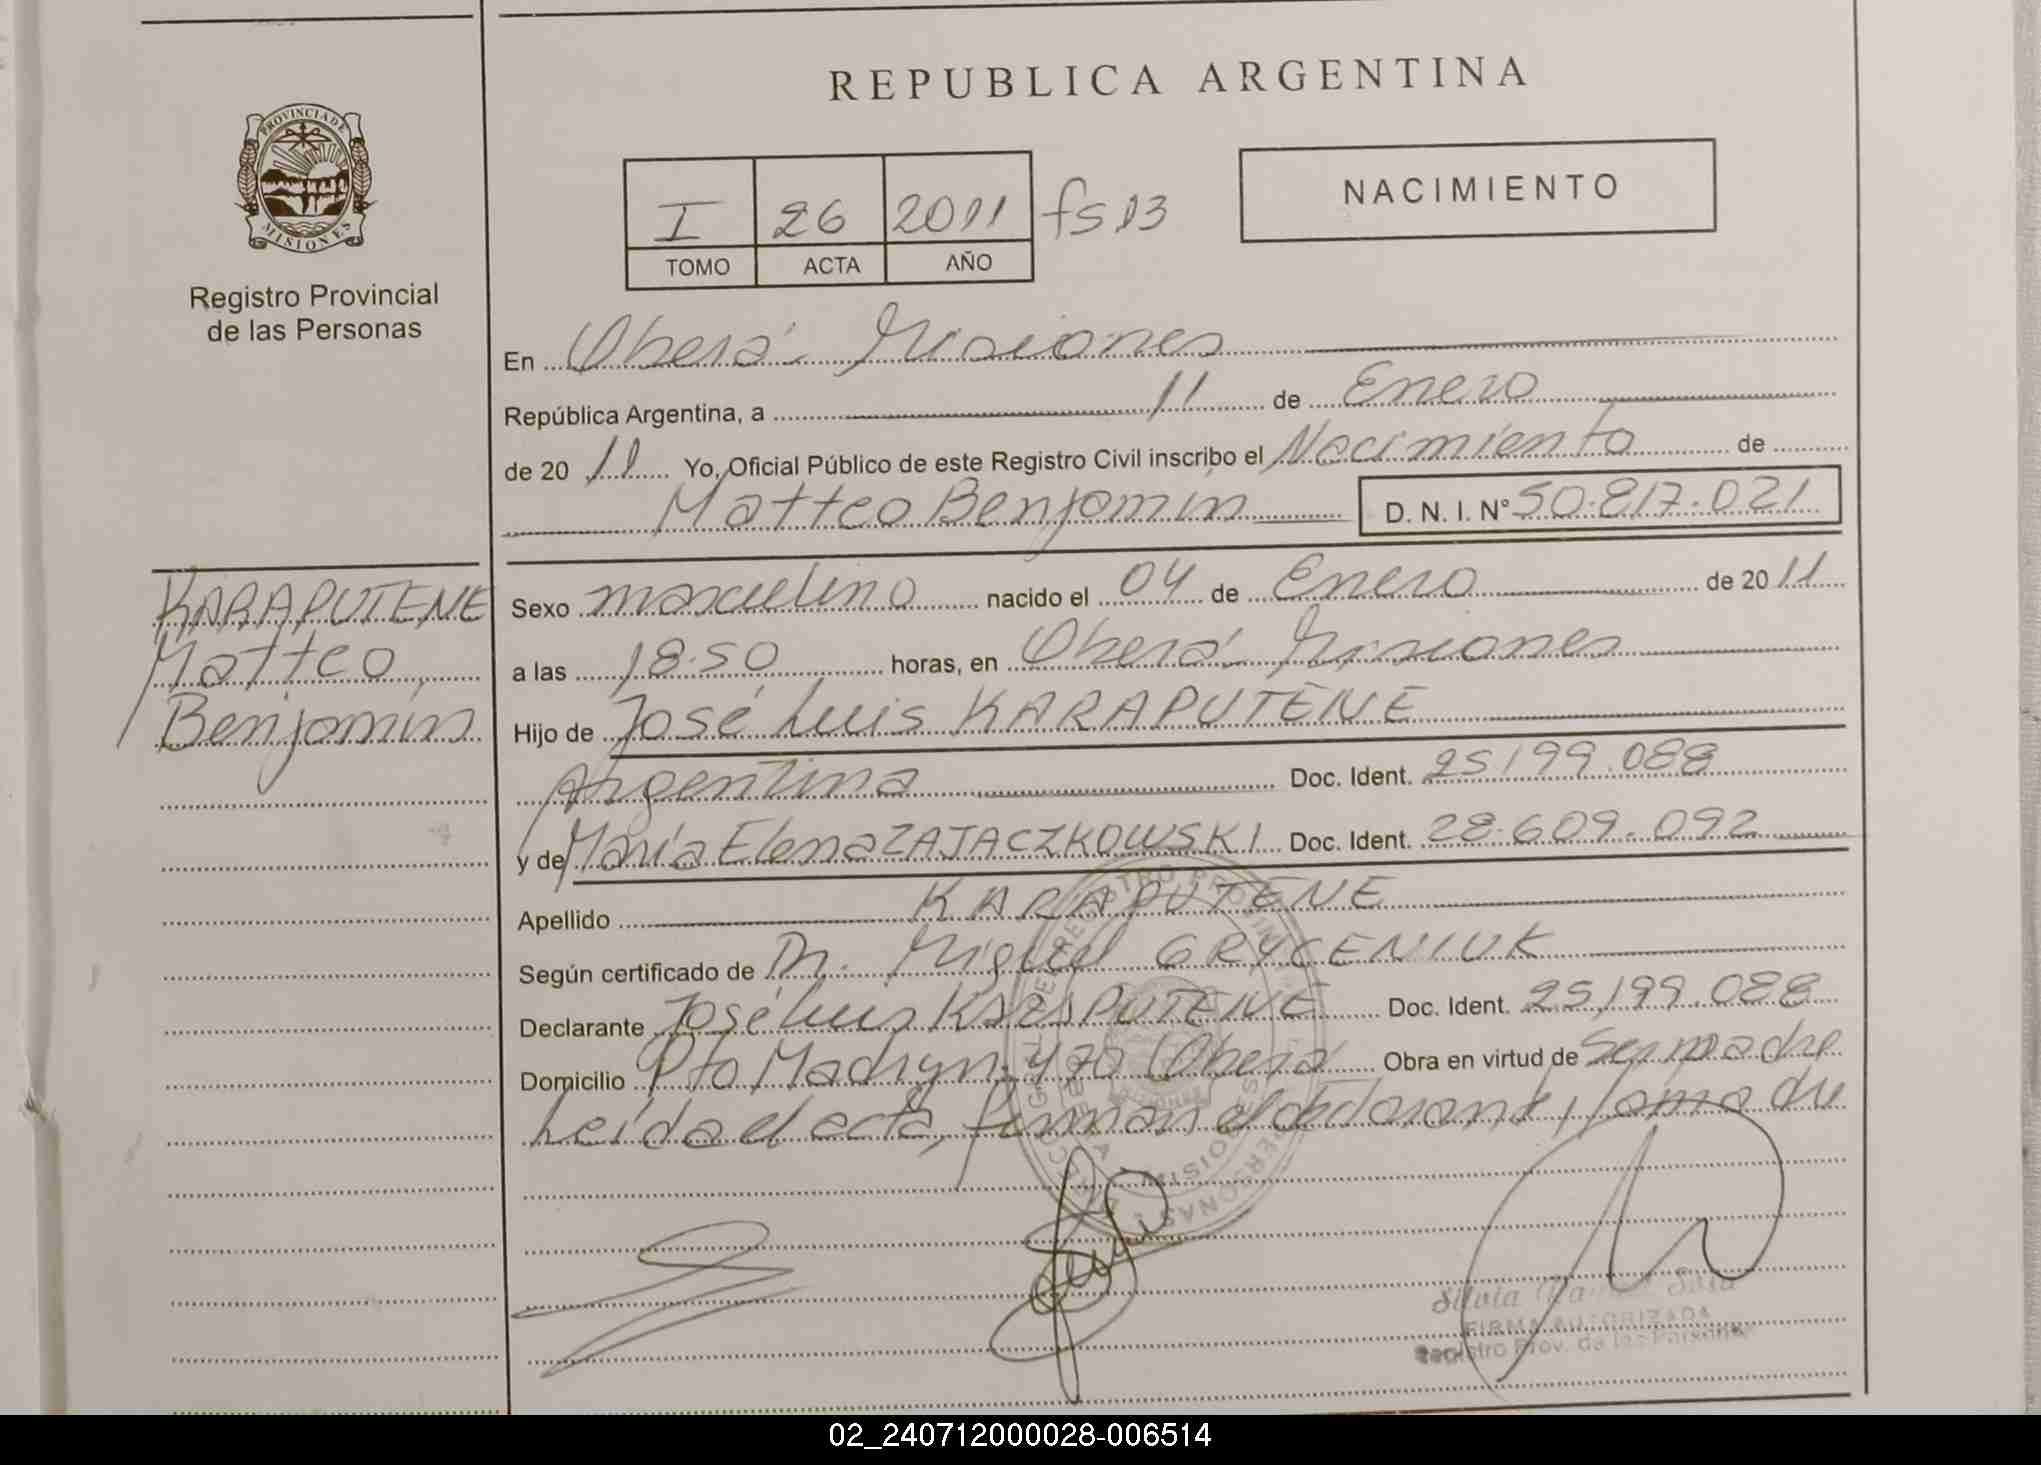 REPUBLICA ARGENTINA
PROVINCIA DE
MISIONES
Registro Provincial
de las Personas
I 26 2011 fs 13
TOMO ACTA AÑO
NACIMIENTO
En Oberá Misiones
República Argentina, a 11 de Enero
de 20 11 Yo, Oficial Público de este Registro Civil inscribo el Nacimiento de
Matteo Benjamín D. N. I. N° 50.817.021
KARAPUTENE
Matteo
Benjamín
Sexo masculino nacido el 04 de Enero de 20 11
a las 18.50 horas, en Oberá Misiones
Hijo de José Luis KARAPUTENE
Argentina Doc. Ident. 25199.088
y de María Elena ZAJACZKOWSKI Doc. Ident. 28.609.092
Apellido KARAPUTENE
Según certificado de Dr. Miguel GRYCENIUK
Declarante José Luis KARAPUTENE Doc. Ident. 25199.088
Domicilio Pto Madryn 470 Oberá Obra en virtud de Ser padre
Leída el acta, firman el declarante, la madre
REGISTRO PROVINCIAL DE
PERSONAS
MISIONES
Silvia
FIRMA AUTORIZADA
Registro Prov. de las Personas
02_240712000028-006514